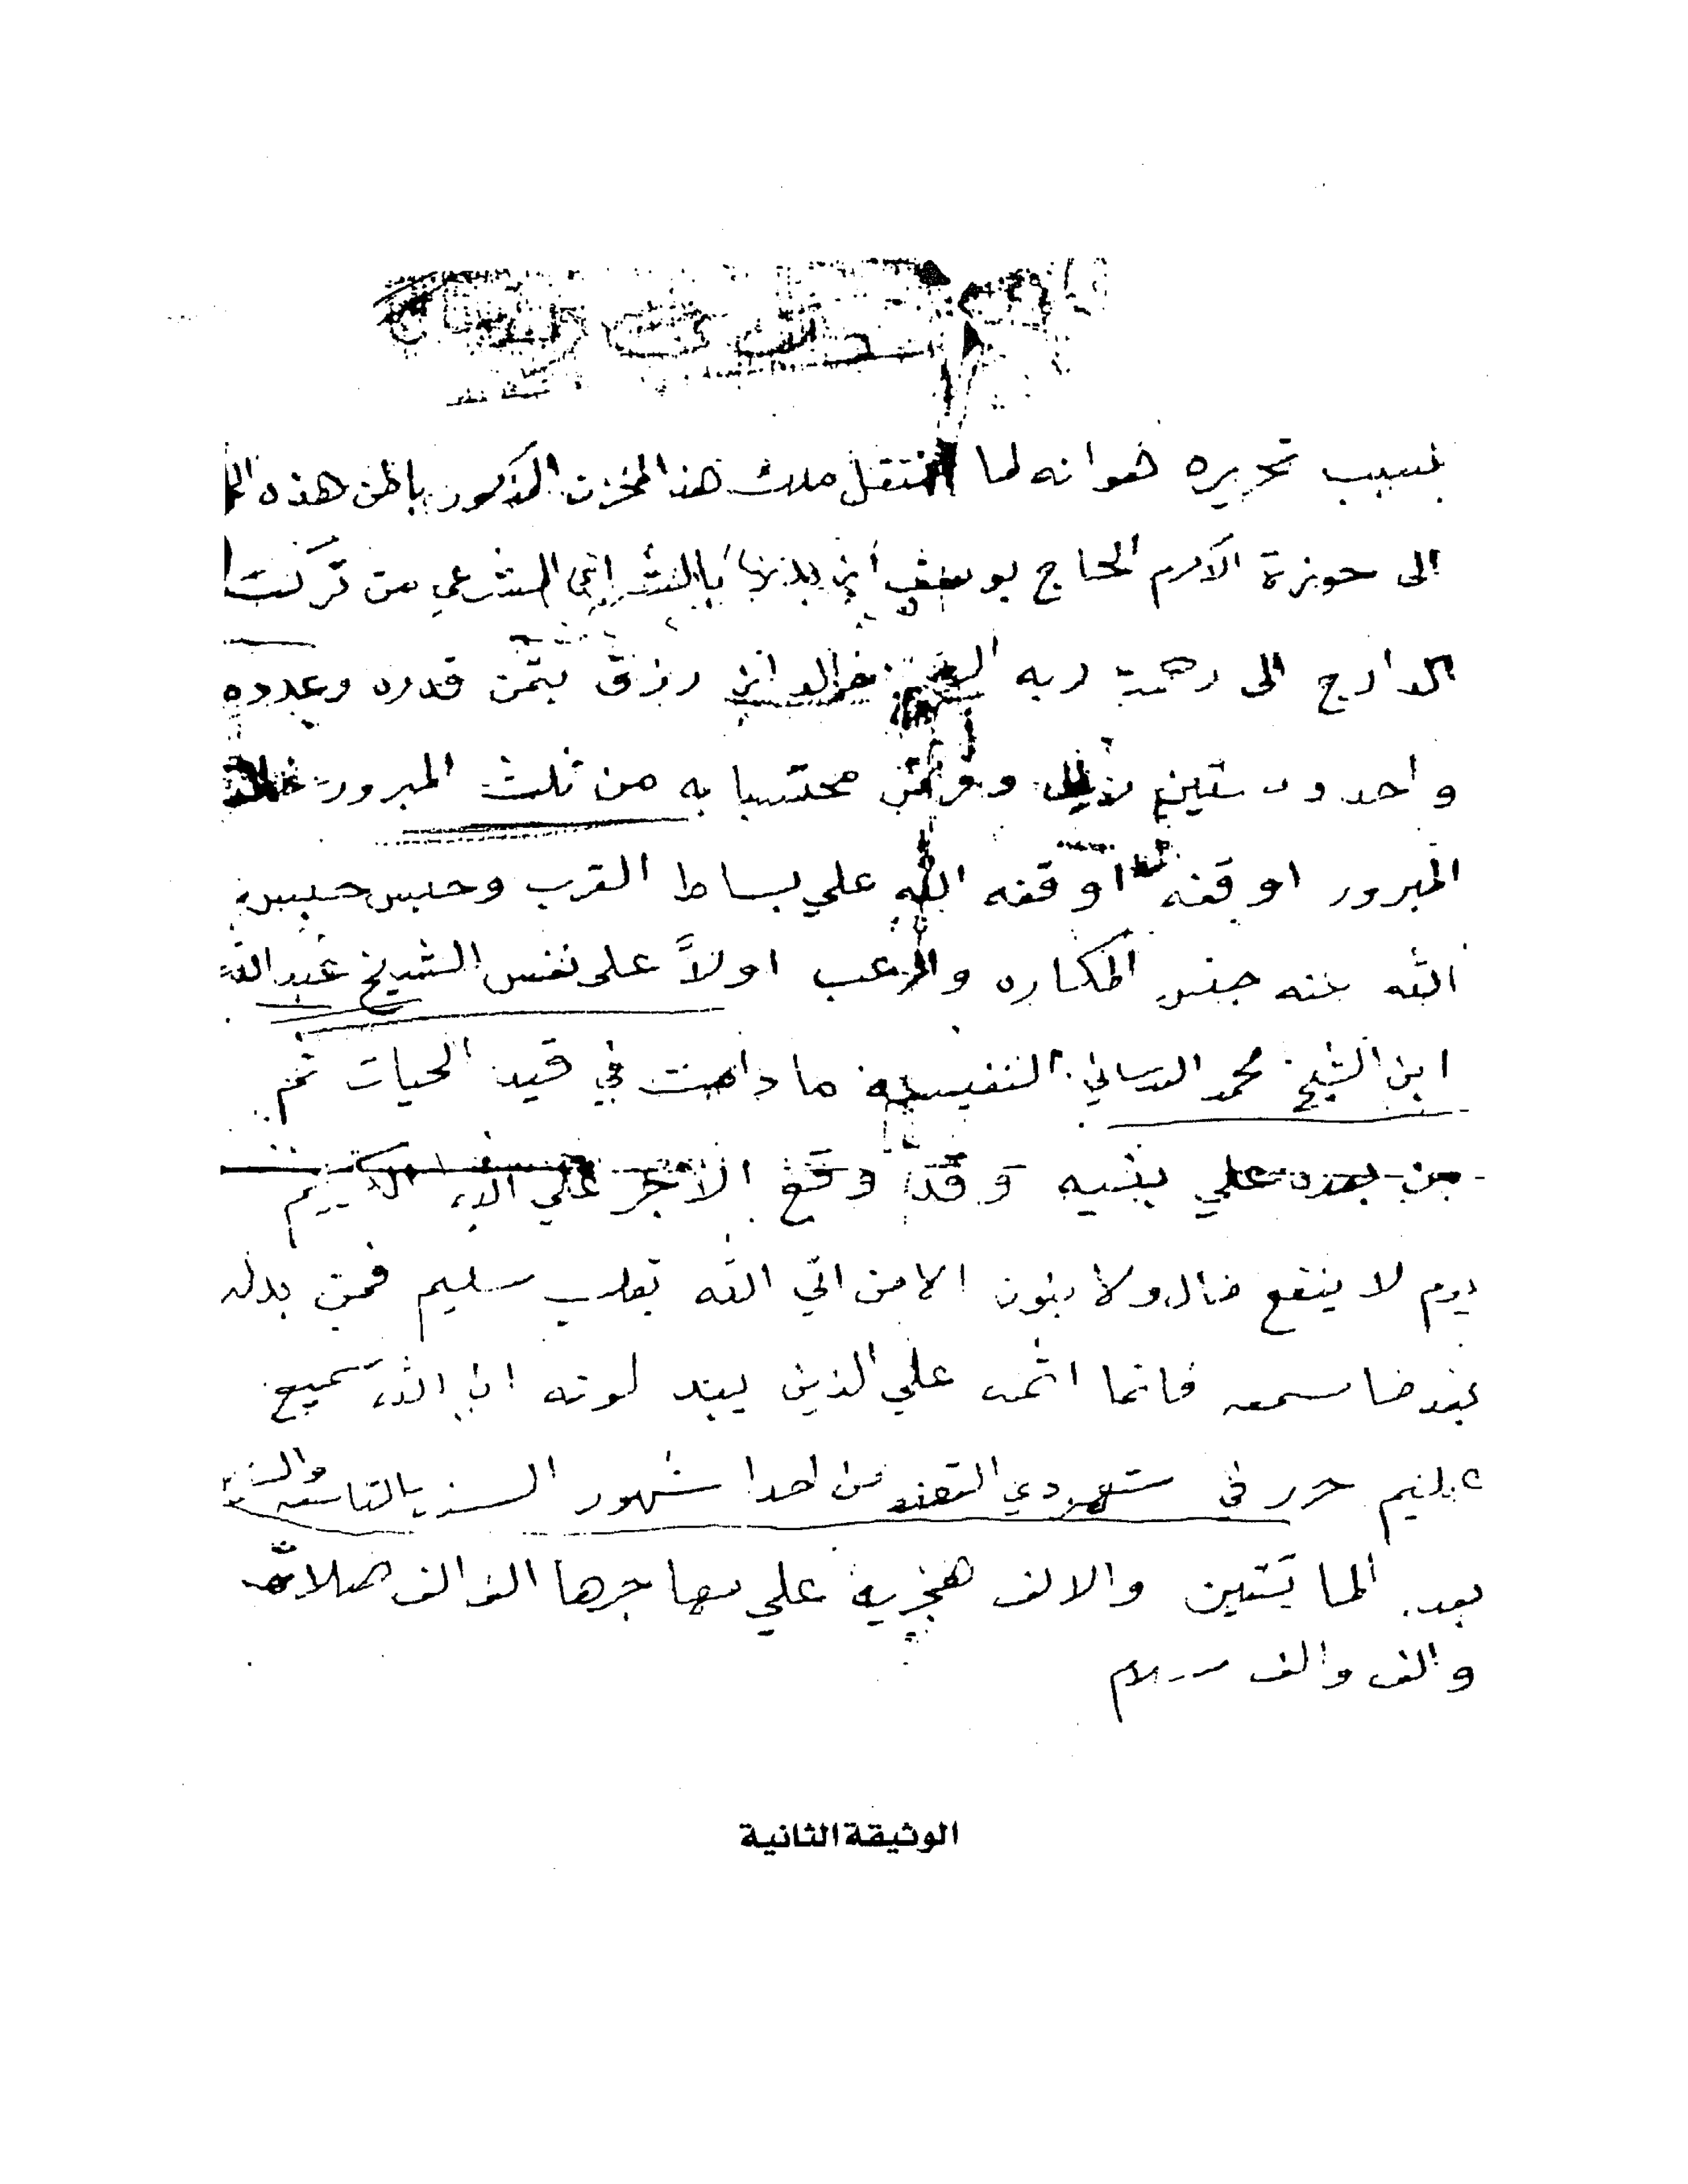 بسبب تحريره هو انه لما انتقل ملك هذا المخزن المذكور باطن هذه
الى حوزة الاكرم الحاج يوسف ابن بدر بالشراي الشرعي من تركت
الدارج الى رحمة ربه خالد ابن رزق بثمن قدره وعدده
واحد وستين ريال وقرش محتسبا به من ثلث المبرور خالد
المبرور اوقفه اوقفه الله علي بساط القرب وحبس حبس
الله عنه جنس المكاره والرعب اولاً على نفس الشيخ عبدالله
ابن الشيخ محمد النفيسه ما دامت في قيد الحيات ثم
من بعده علي بنيه وقد وقع الاجر علي الله الكريم
يوم لا ينفع مال ولا بنون الا من اتي الله بقلب سليم فمن بدله
بعد ما سمعه فانما اثمه علي الذين يبدلونه ان الله سميع
عليم حرر في شهر ذي القعده من احدا شهور السنه التاسعه
بعد المايتين والالف هجريه علي مهاجرها الف الف صلاة
والف والف سلام
الوثيقة الثانية